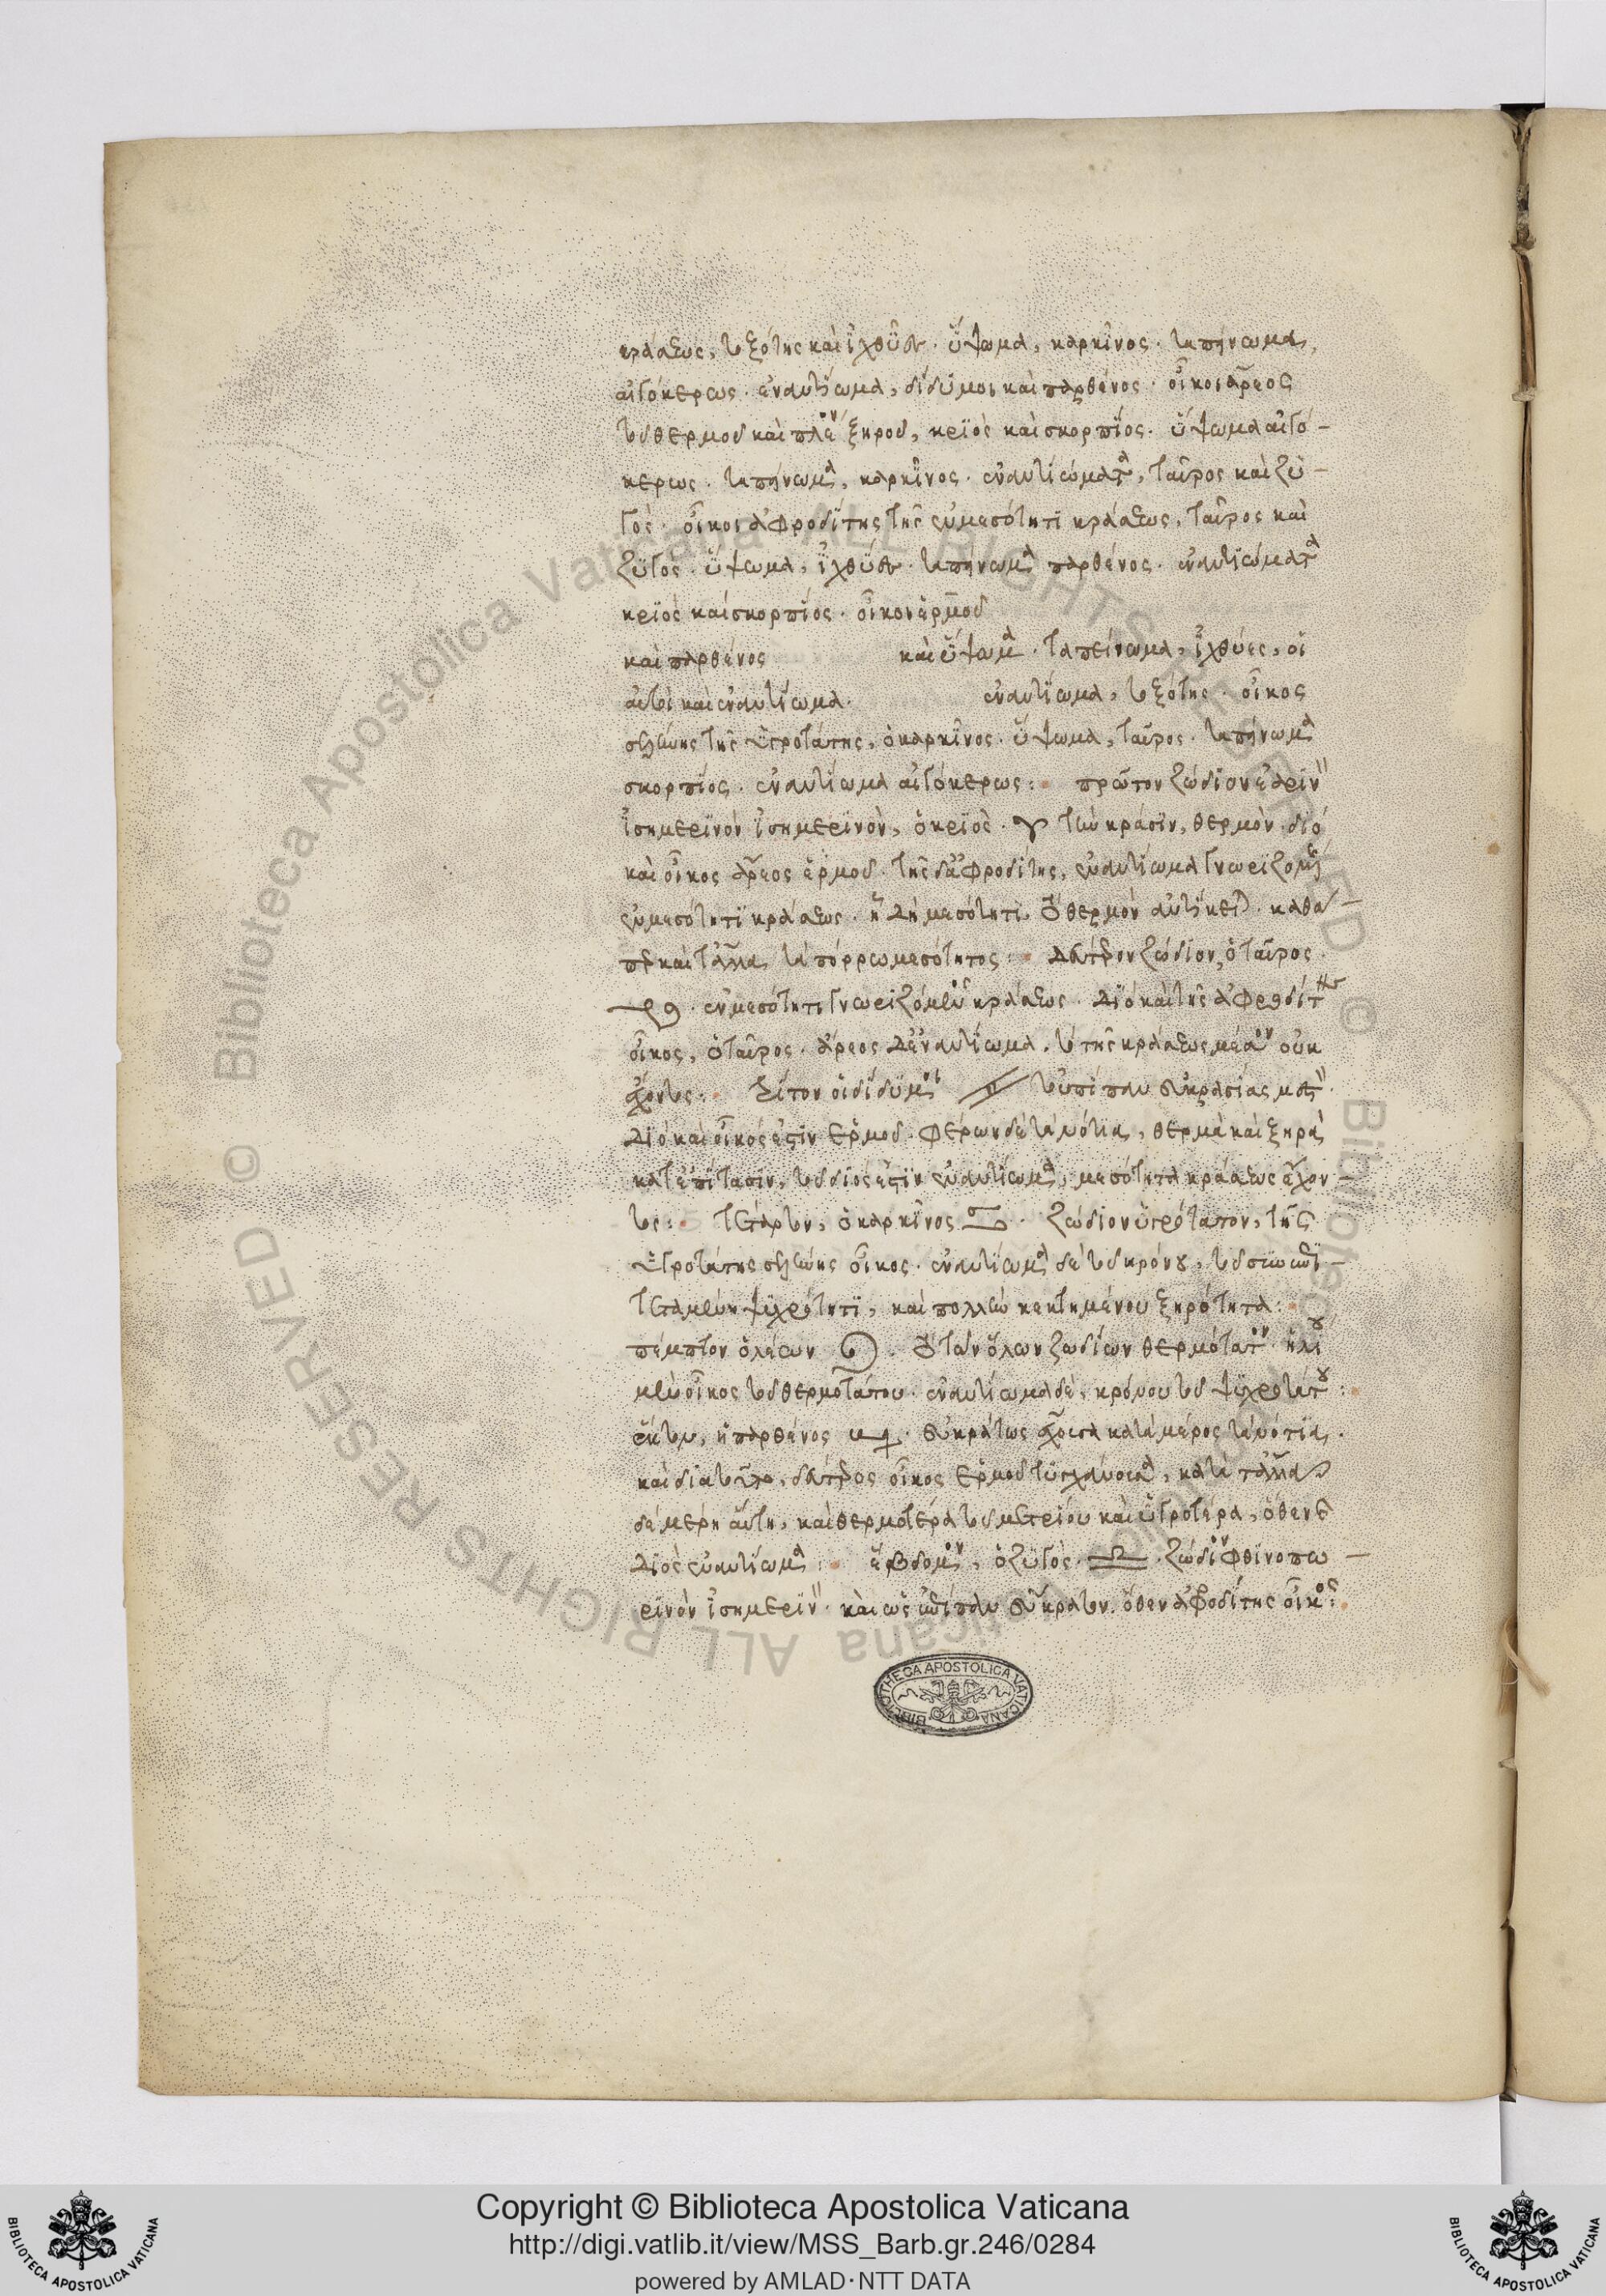 κράσεως, τοξότης καὶ ἰχθύες. ὕψωμα, καρκίνος. ταπείνωμα,
αἰγόκερως. ἐναντίωμα, δίδυμοι καὶ παρθένος. οἶκοι ἄρεος
τοῦ θερμοῦ καὶ πλέον ξηροῦ, κριὸς καὶ σκορπίος. ὕψωμα αἰγό-
κερως. ταπείνωμα, καρκίνος. ἐναντιώματα, ταῦρος καὶ ζυ-
γός. οἶκοι ἀφροδίτης τῆς ἐν μεσότητι κράσεως, ταῦρος καὶ
ζυγός. ὕψωμα, ἰχθύες. ταπείνωμα παρθένος. ἐναντιώματα
κριὸς καὶ σκορπίος. οἶκοι ἑρμοῦ
καὶ παρθένος καὶ ὕψωμα. ταπείνωμα, ἰχθύες, οἱ
αὐτοὶ καὶ ἐναντίωμα. ἐναντίωμα, τοξότης. οἶκος
σελήνης τῆς ὑγροτάτης, ὁ καρκίνος. ὕψωμα, ταῦρος. ταπείνωμα
σκορπίος. ἐναντίωμα αἰγόκερως: πρῶτον ζώδιον ἐαρινὸν
ἰσημερινὸν ἰσημερινὸν, ὁ κριὸς. ♈ τὴν κράσιν, θερμὸν. διὸ
καὶ οἶκος ἄρεος ἑρμοῦ. τῆς δ' ἀφροδίτης, ἐναντίωμα γνωριζομένης
ἐν μεσότητι κράσεως. ἢ δὴ μεσότητι τὸ θερμὸν ἀντίκειται. καθά-
περ καὶ τἄλλα τὰ πόρρω μεσότητος: δεύτερον ζώδιον, ὁ ταῦρος
♉. ἐν μεσότητι γνωριζόμενος κράσεως. διὸ καὶ τῆς ἀφροδίτης
οἶκος, ὁ ταῦρος. ἄρεος δ' ἐναντίωμα. τὸ τῆς κράσεως μέσον οὐκ
ἔχοντος: τρίτον οἱ δίδυμοι ♊ τὸ ἐπίπαν εὐκρασίας μετ
διὸ καὶ οἶκός ἐστιν ἑρμοῦ. φέρων δὲ τὰ νότια, θερμὰ καὶ ξηρὰ
κατ' ἐπίτασιν, τοῦ διός ἐστιν ἐναντίωμα, μεσότητα κράσεως ἔχον-
τος: τέταρτον, ὁ καρκίνος ♋. ζώδιον ὑγρότατον, τῆς
ὑγροτάτης σελήνης οἶκος. ἐναντίωμα δὲ τοῦ κρόνου, τοῦ σὺν ἐπι-
τεταμένῃ ψυχρότητι, καὶ πολλὴν κεκτημένου ξηρότητα:
πέμπτον ὁ λέων ♌. τὸ τῶν ὅλων ζωδίων θερμότατον. ἡλίου
μὲν οἶκος τοῦ θερμοτάτου. ἐναντίωμα δὲ, κρόνου τοῦ ψυχροτάτου:
ἕκτον, ἡ παρθένος ♍. εὐκράτως ἔχουσα κατὰ μέρος τὰ νότια.
καὶ διὰ τοῦτο, δεύτερος οἶκος ἑρμοῦ τυγχάνουσα, κατὰ τἄλλα
δὲ μέρη αὕτη, καὶ θερμοτέρα τοῦ μετρίου καὶ ὑγροτέρα, ὅθεν ἐ
διὸς ἐναντίωμα: ἕβδομον, ὁ ζυγὸς. ♎. ζώδιον φθινοπω-
ρινὸν ἰσημερινὸν. καὶ ὡς ἐπίπαν εὔκρατον. ὅθεν ἀφροδίτης οἶκος:
BIBLIOTHECA APOSTOLICA VATICANA
© Biblioteca Apostolica Vaticana ALL RIGHTS RESERVED
Copyright © Biblioteca Apostolica Vaticana
http://digi.vatlib.it/view/MSS_Barb.gr.246/0284
powered by AMLAD·NTT DATA
BIBLIOTECA APOSTOLICA VATICANA
BIBLIOTECA APOSTOLICA VATICANA